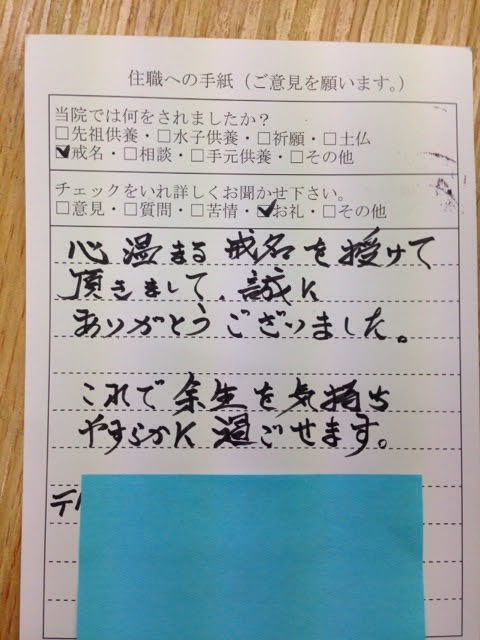 住職への手紙（ご意見を願います。）
当院では何をされましたか？
□先祖供養・□水子供養・□祈願・□土仏
☑戒名・□相談・□手元供養・□その他
チェックをいれ詳しくお聞かせ下さい。
□意見・□質問・□苦情・☑お礼・□その他
心温まる戒名を授けて
頂きまして、誠に
ありがとうございました。
これで余生を気持ち
やすらかに過ごせます。